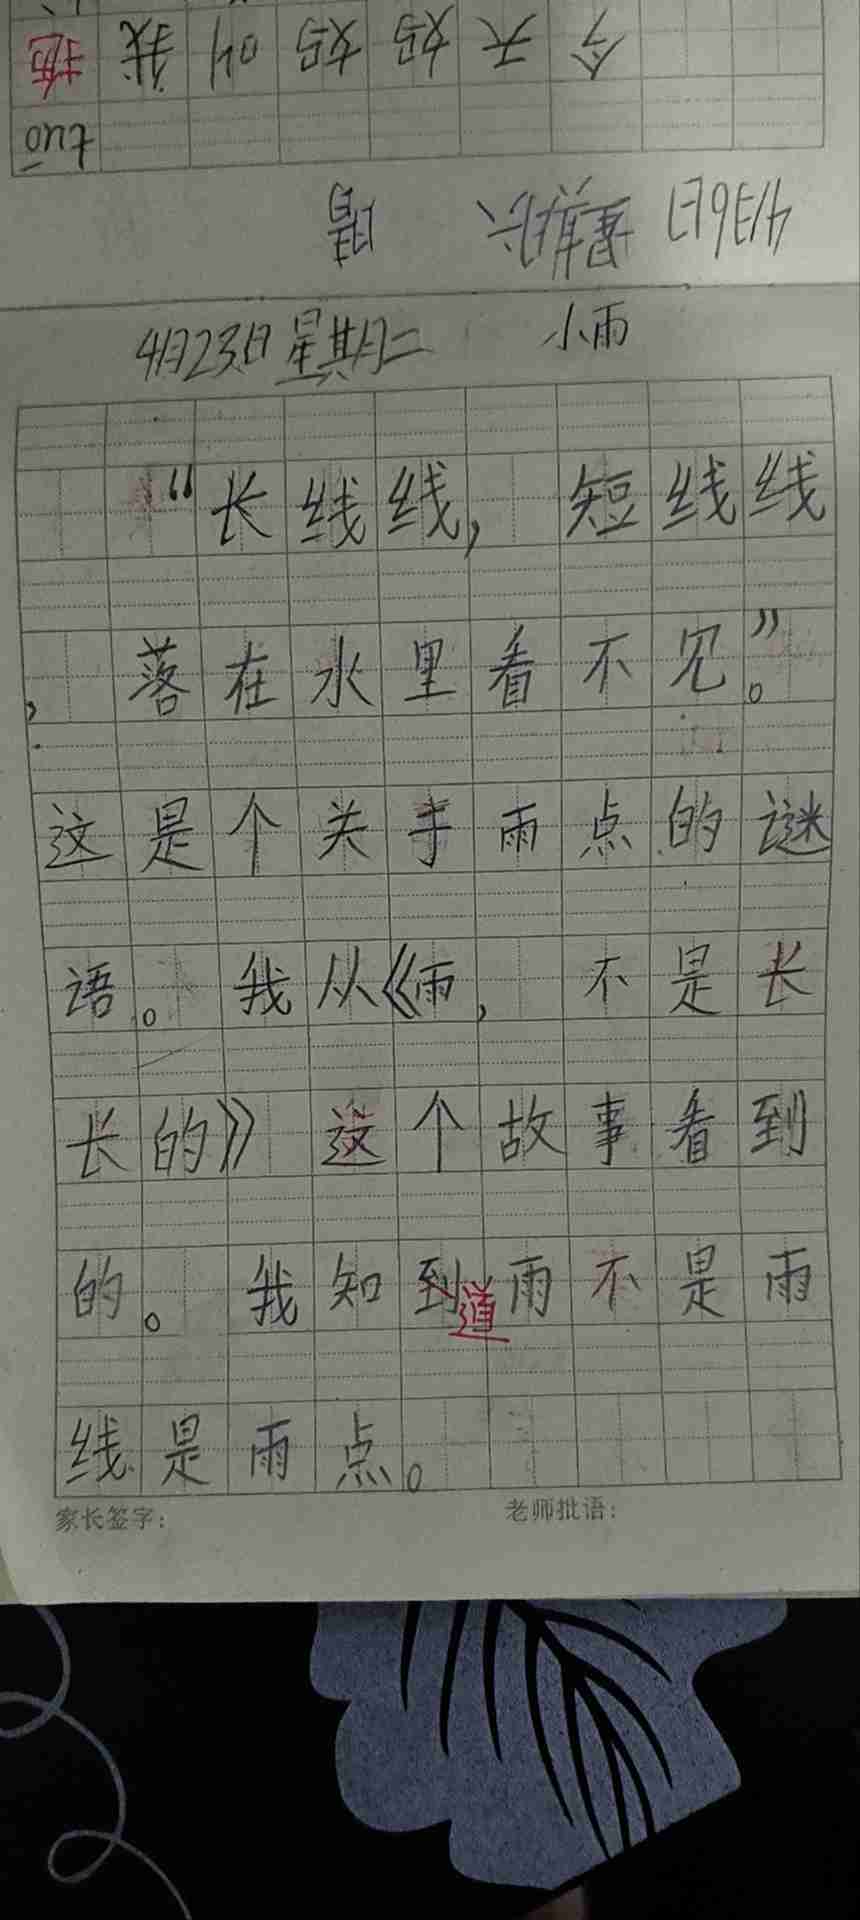 tuō
今天妈妈叫我拖
4月6日 星期六 晴
4月23日 星期二 小雨
“长线线，短线线
，落在水里看不见。”
这是个关于雨点的谜
语。我从《雨，不是长
长的》这个故事看到
的。我知到道雨不是雨
线是雨点。
家长签字： 老师批语：